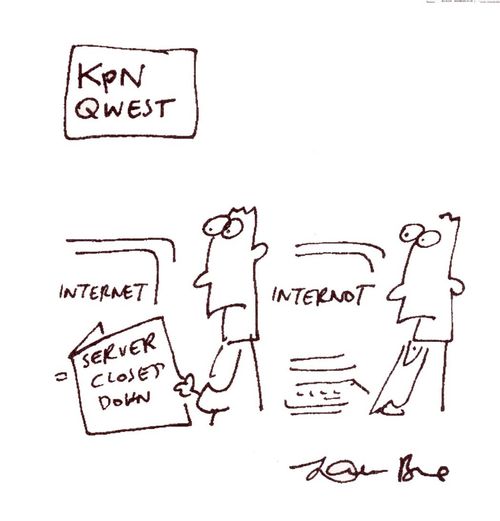 KPN
QWEST
INTERNET
INTERNOT
SERVER
CLOSED
DOWN